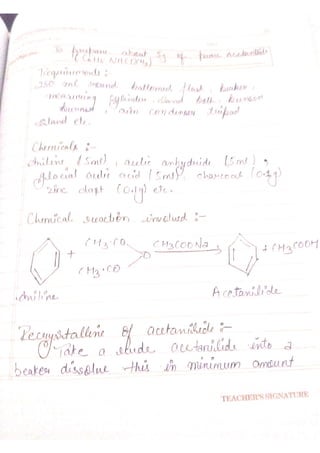 To prepare about 5g of pure acetanilide
(C6H5 NHCOCH3)
Requirements :-
250 ml round bottomed flask, beaker,
measuring cylinder, sand bath, bunson
burner, air condenser tripod
stand etc.
Chemicals :-
Aniline (5ml), acetic anhydride (5ml),
glacial acetic acid (5ml), charcoal (0.2g)
zinc dast (0.1g) etc.
Chemical reaction involved :-
CH3-CO CH3COONa + CH3COOH
+ O
CH3-CO
Aniline Acetanilide
Recrystalline of acetanilide :-
Take a crude acetanilide into a
beaker dissolve this in minimum amount
TEACHER'S SIGNATURE